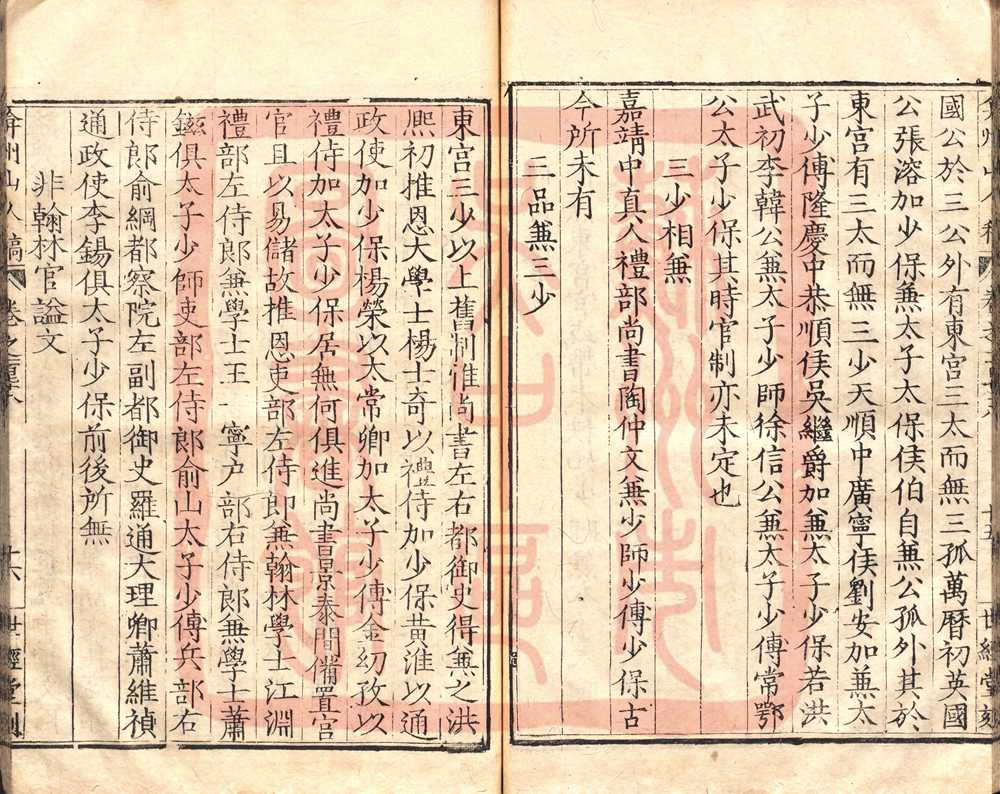 國公於三公外有東宮三太而無三孤萬曆初英國
公張溶加少保兼太子太保侯伯自兼公孤外其於
東宮有三太而無三少天順中廣寧侯劉安加兼太
子少傅隆慶中恭順侯吳繼爵加兼太子少保若洪
武初李韓公兼太子少師徐信公兼太子少傅常鄂
公太子少保其時官制亦未定也
三少相兼
嘉靖中真人禮部尚書陶仲文兼少師少傅少保古
今所未有
三品兼三少
東宮三少以上舊制惟尚書左右都御史得兼之洪
熈初推恩大學士楊士奇以禮侍加少保黃淮以通
政使加少保楊榮以太常卿加太子少傅金幼孜以
禮侍加太子少保居無何俱進尚書景泰間備置宮
官且以易儲故推恩吏部左侍郎兼翰林學士江淵
禮部左侍郎兼學士王一寧户部右侍郎兼學士蕭
鎡俱太子少師吏部左侍郎俞山太子少傅兵部右
侍郎俞綱都察院左副都御史羅通大理卿蕭維禎
通政使李錫俱太子少保前後所無
非翰林官謚文
弇州山人稿 卷之 十六 世經堂刻